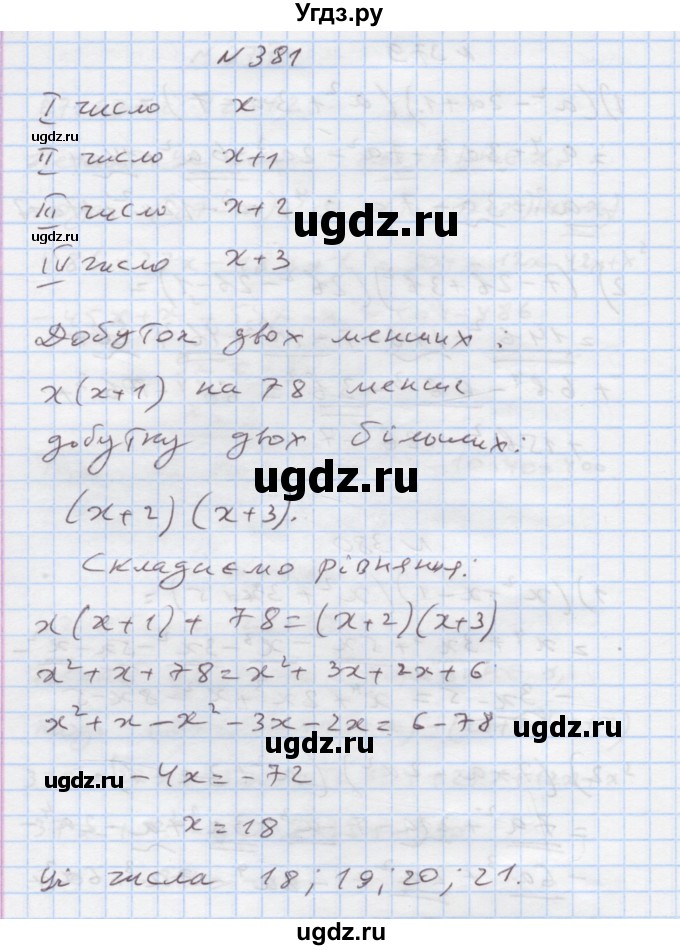 Угдз.ру
№381
I число x
ugdz.ru
II число x+1
III число x+2
ugdz.ru
ugdz.ru
IV число x+3
Добуток двох менших:
x(x+1) на 78 менше
добутку двох більших:
ugdz.ru
(x+2)(x+3).
Складаємо рівняння:
x(x+1)+78=(x+2)(x+3)
x²+x+78=x²+3x+2x+6
x²+x-x²-3x-2x=6-78
ugdz.ru
ugdz.ru
ugdz.ru
-4x=-72
x=18
Ці числа 18; 19; 20; 21.
ugdz.ru